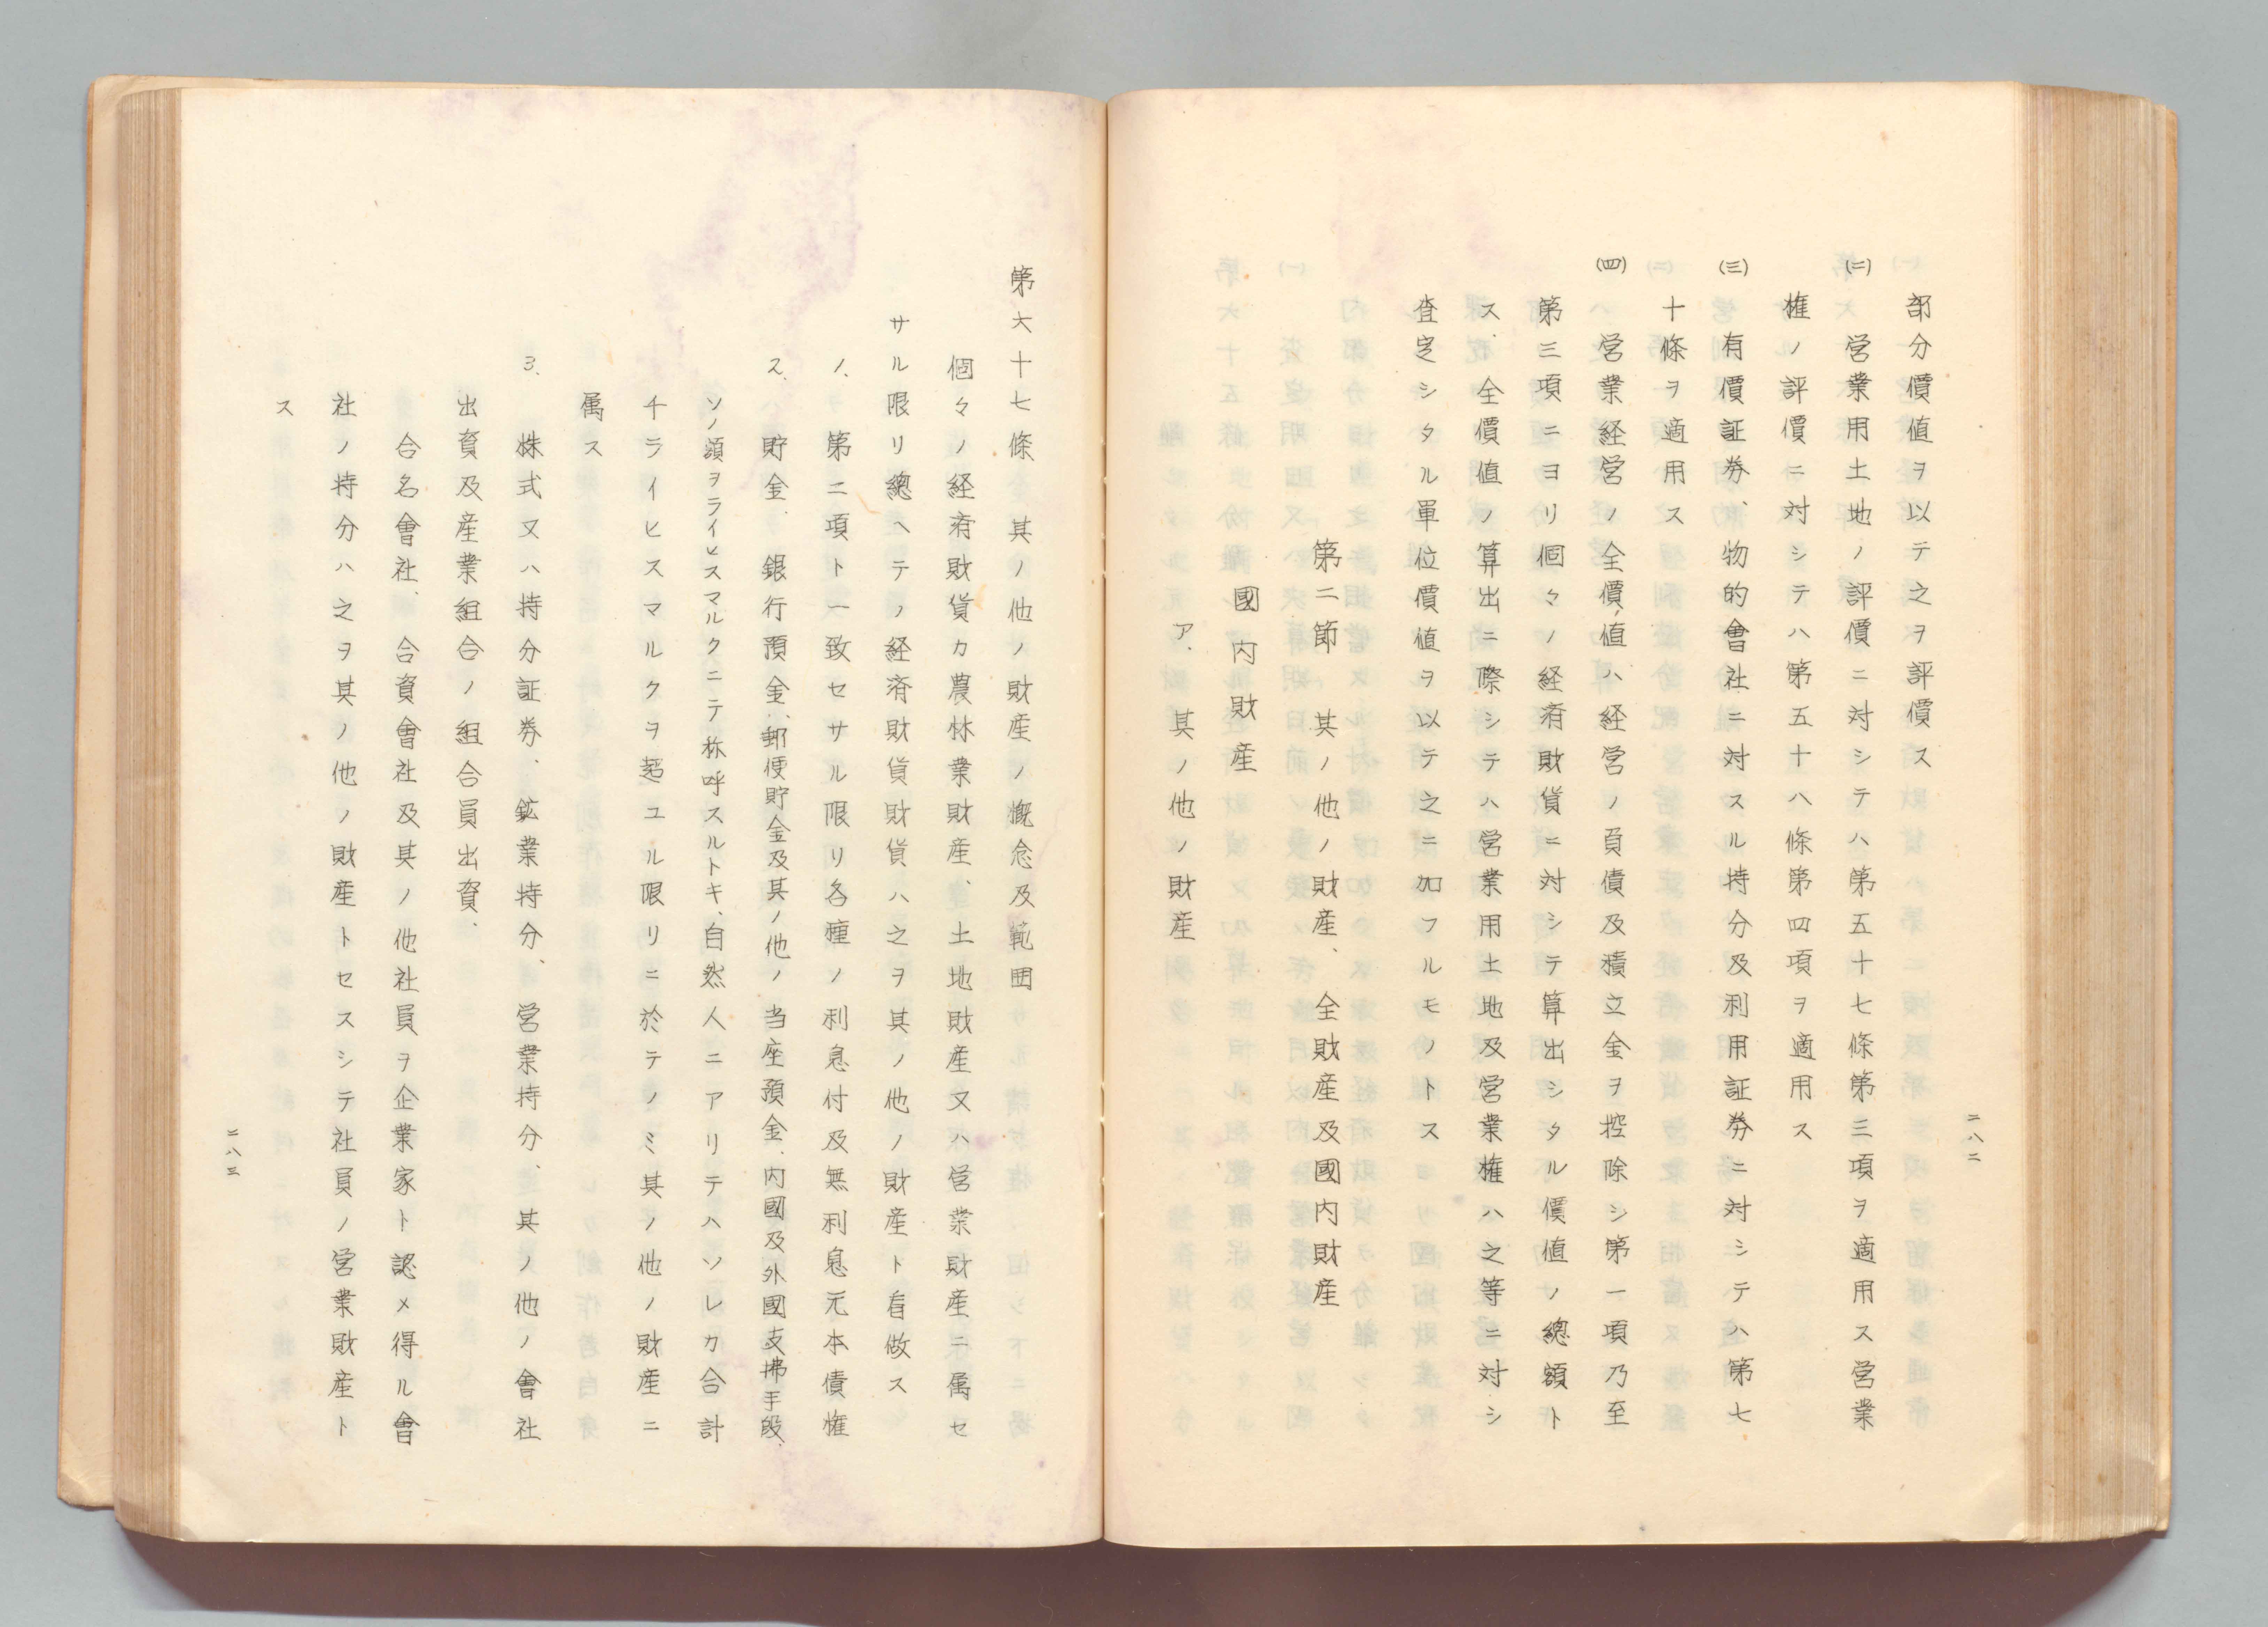 二八二
部分價値ヲ以テ之ヲ評價ス
(二) 営業用土地ノ評價ニ対シテハ第五十七條第三項ヲ適用ス営業
権ノ評價ニ対シテハ第五十八條第四項ヲ適用ス
(三) 有價証券、物的會社ニ対スル持分及利用証券ニ対シテハ第七
十條ヲ適用ス
(四) 営業経営ノ全價値ハ経営ノ負債及積立金ヲ控除シ第一項乃至
第三項ニヨリ個々ノ経済財貨ニ対シテ算出シタル價値ノ總額ト
ス、全價値ノ算出ニ際シテハ営業用土地及営業権ハ之等ニ対シ
査定シタル單位價値ヲ以テ之ニ加フルモノトス
第二節 其ノ他ノ財産、全財産及國内財産
國内財産
ア、其ノ他ノ財産
第六十七條 其ノ他ノ財産ノ概念及範囲
個々ノ経済財貨カ農林業財産、土地財産又ハ営業財産ニ属セ
サル限リ總ヘテノ経済財貨財貨ハ之ヲ其ノ他ノ財産ト看做ス
1、第二項ト一致セサル限リ各種ノ利息付及無利息元本債権
2、貯金、銀行預金、郵便貯金及其ノ他ノ当座預金、内國及外國支拂手段、
ソノ額ヲライヒスマルクニテ称呼スルトキ、自然人ニアリテハソレカ合計
千ライヒスマルクヲ超ユル限リニ於テノミ其ノ他ノ財産ニ
属ス
3、株式又ハ持分証券、鉱業持分、営業持分、其ノ他ノ會社
出資及産業組合ノ組合員出資、
合名會社、合資會社及其ノ他社員ヲ企業家ト認メ得ル會
社ノ持分ハ之ヲ其ノ他ノ財産トセスシテ社員ノ営業財産ト
ス
二八三